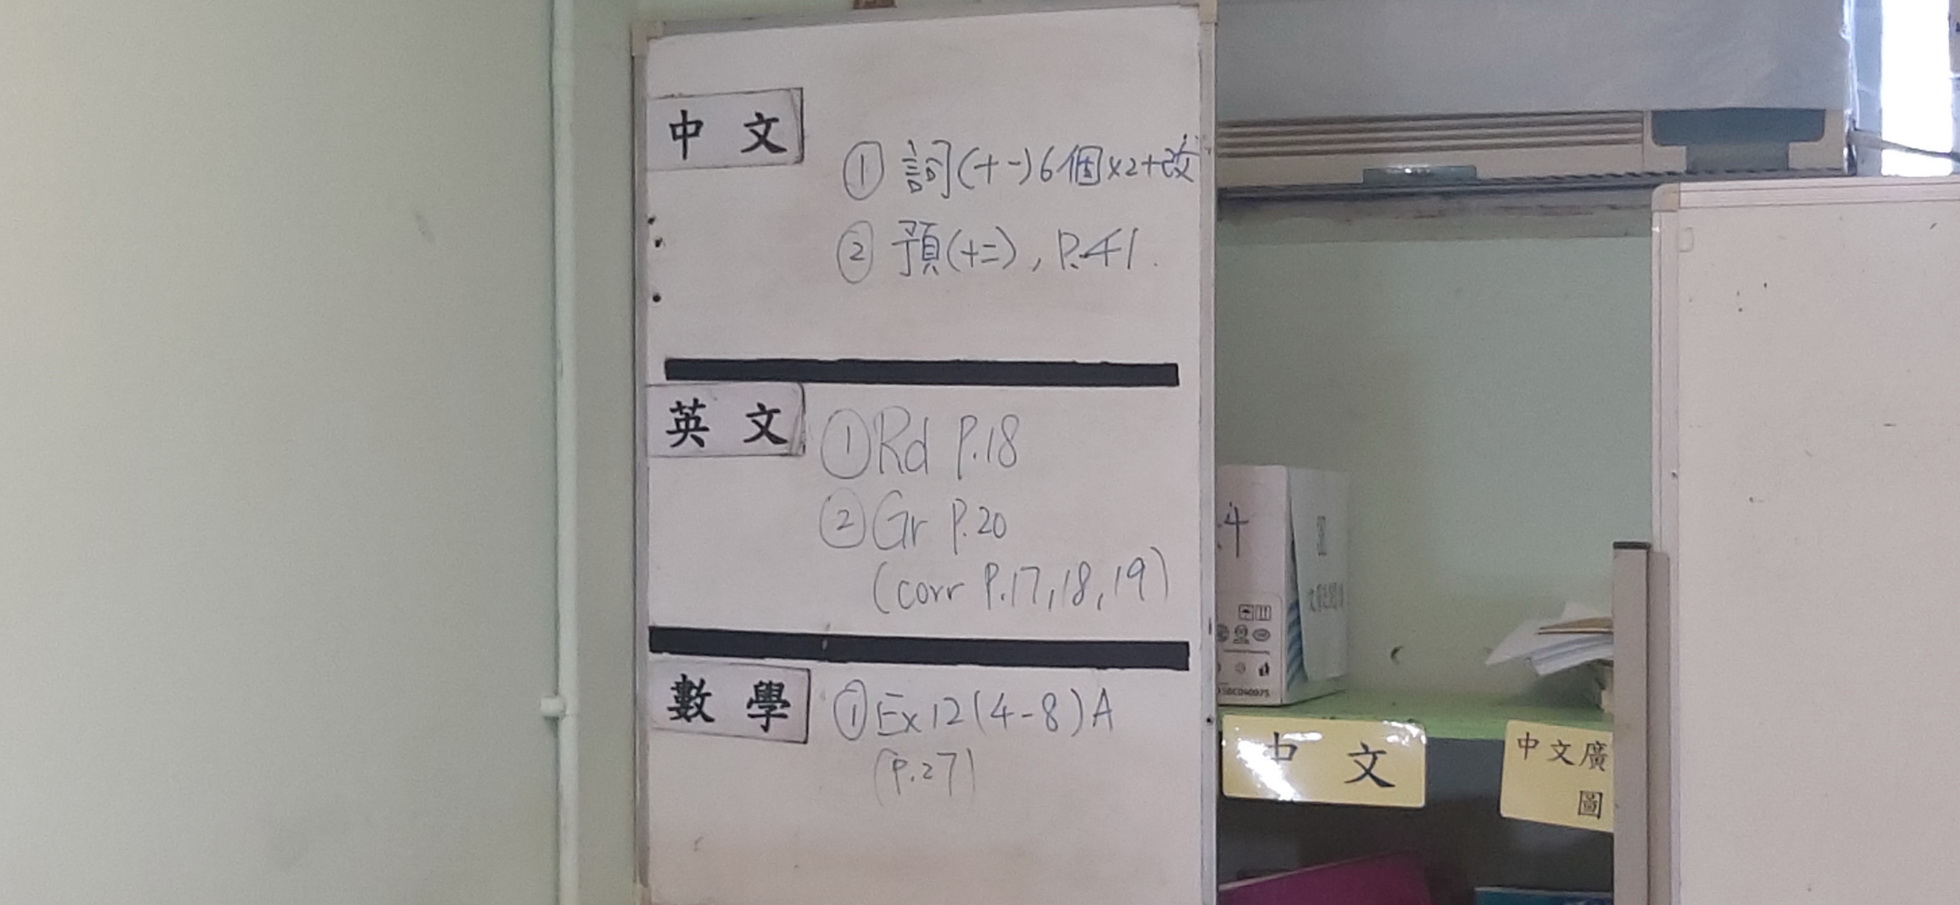 中文
① 詞(十一)6個x2+改
② 預(十二), P.41.
英文
① Rd P.18
② Gr P.20
(corr P.17,18,19)
數學
① Ex 12 (4-8) A
(P.27)
中文
中文廣
圖